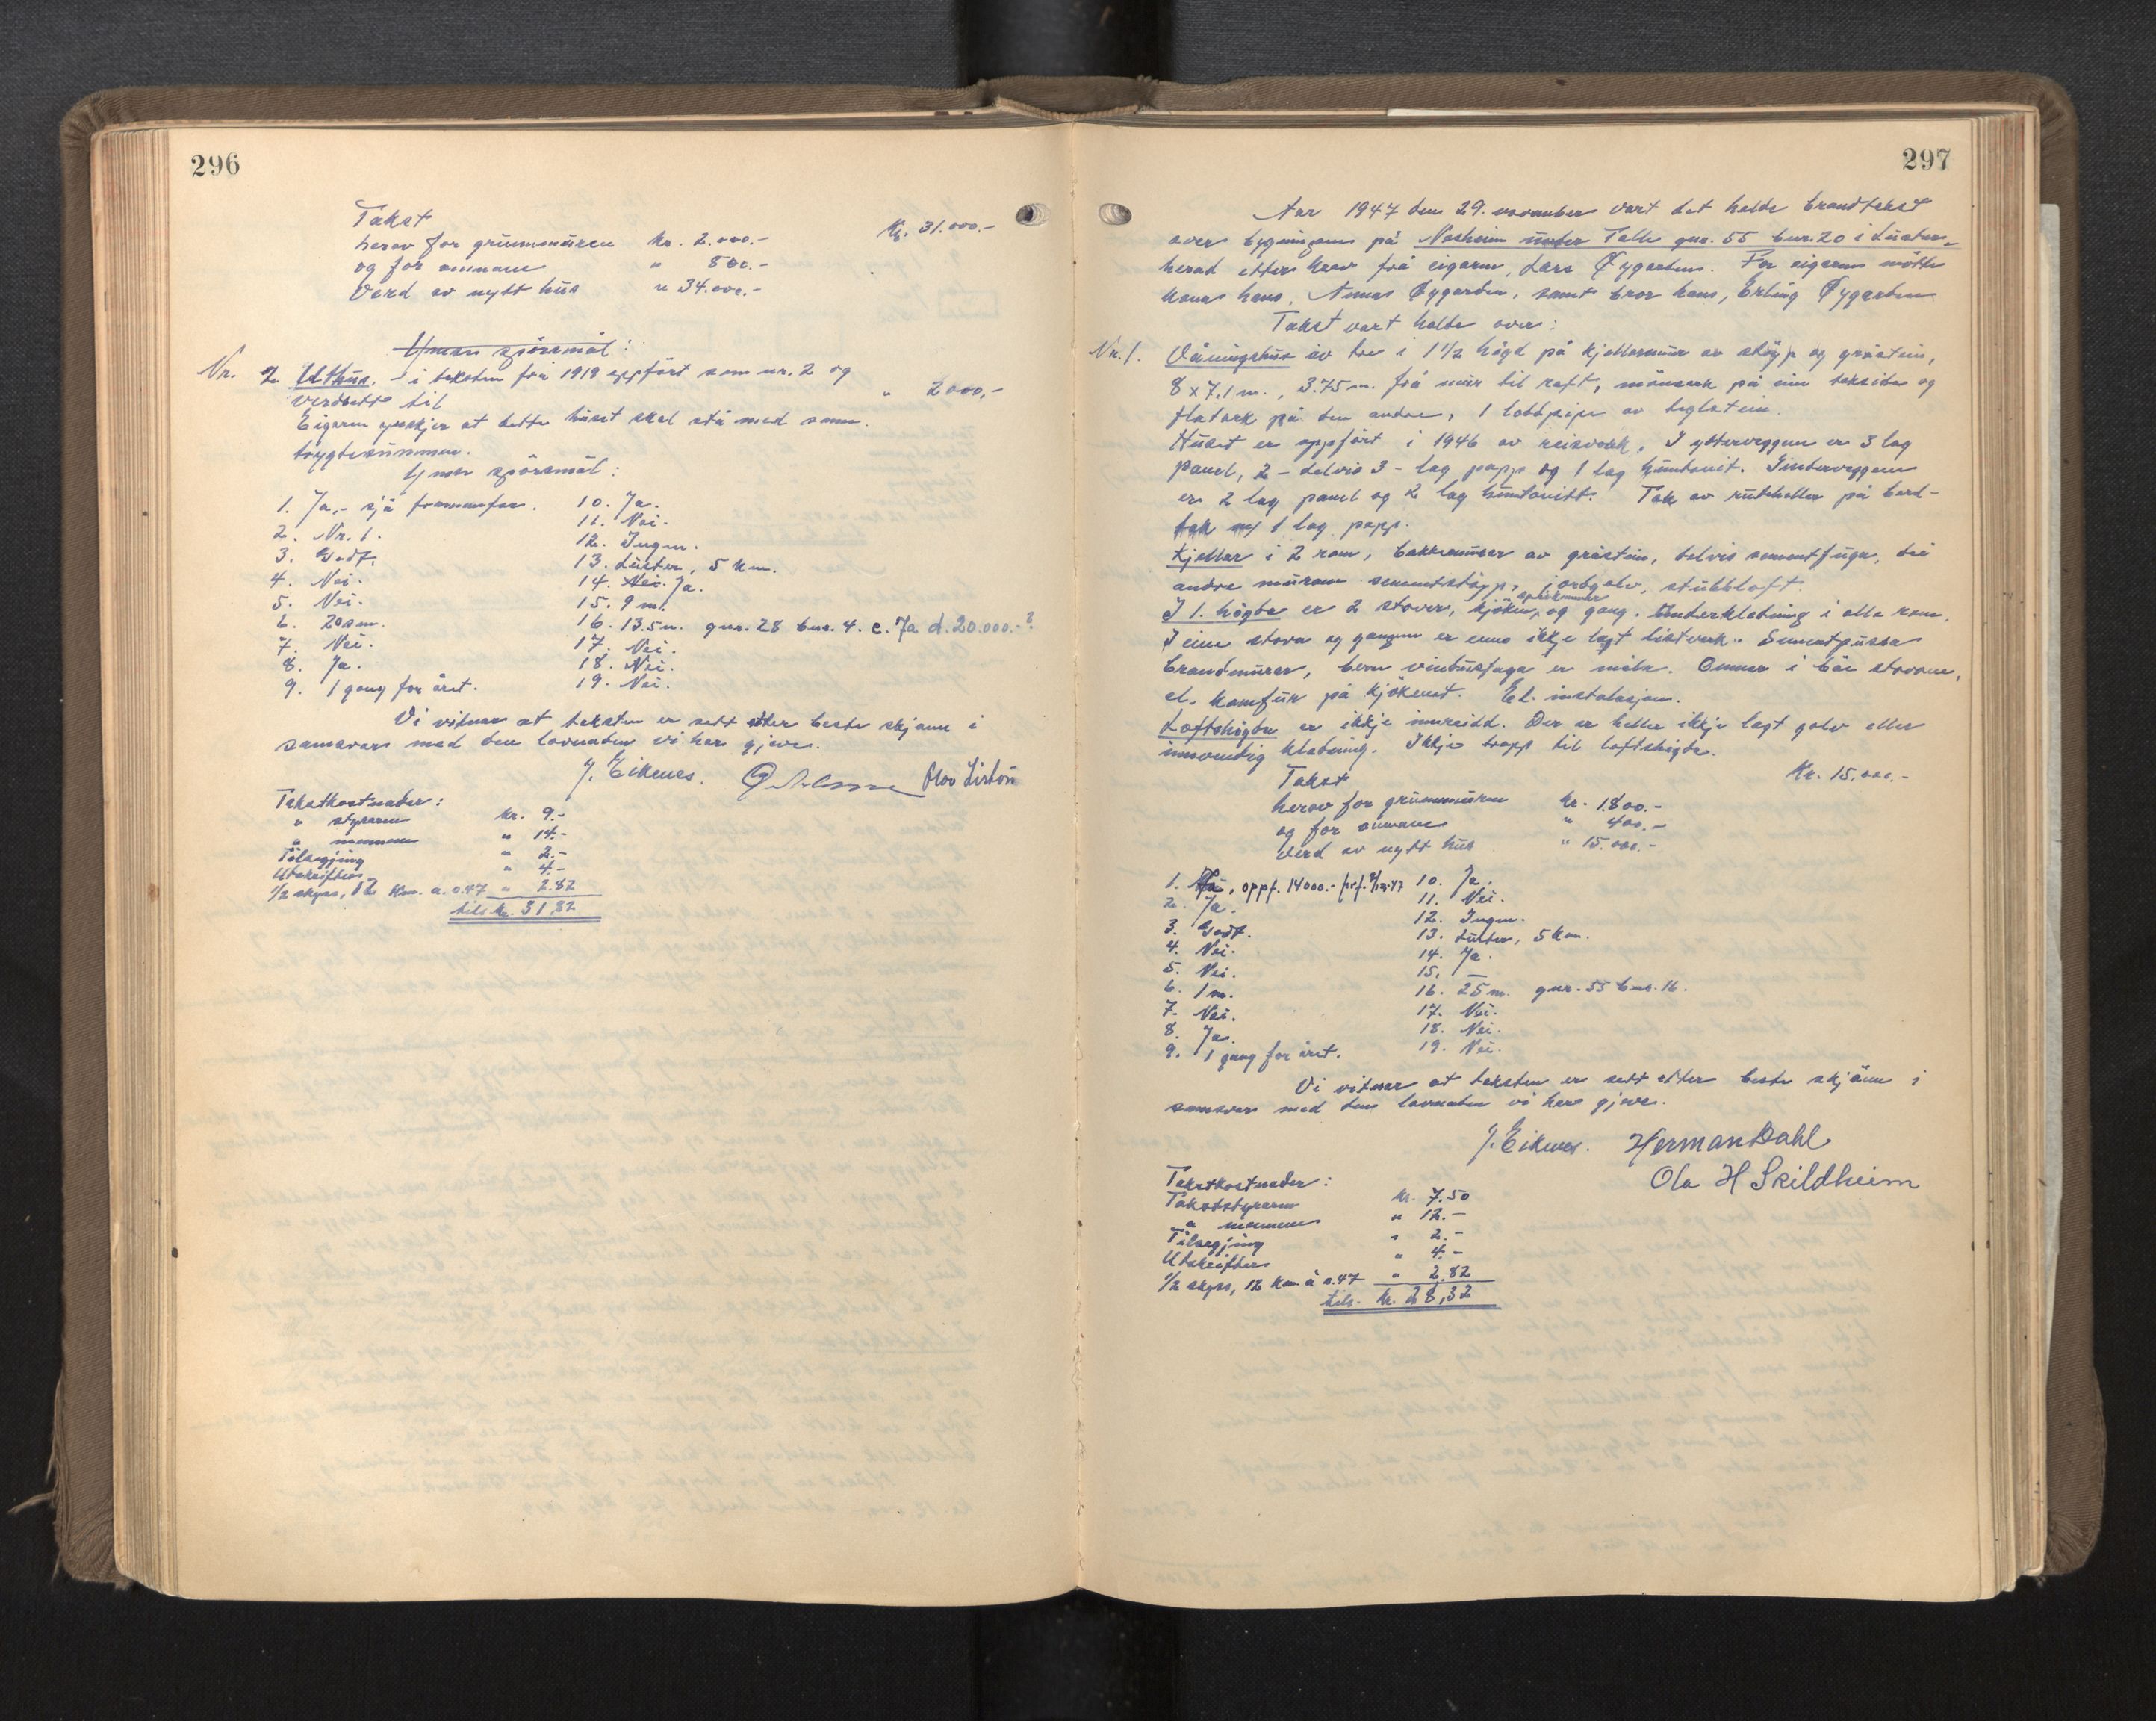 296
Takst
Kr. 31.000.-
herav for grunnmuren kr. 2.000.-
og for omnane " 800.-
Verd av nytt hus " 34.000.-
Ymse spörsmål:
Nr. 2 Uthus. - i taksten frå 1919 oppfört som nr. 2 og
verdsett til " 2000,-
Eigaren ynskjer at dette huset skal stå med same
trygdesummen.
Ymse spörsmål:
1. Ja,- sjå framanfor.
2. Nr. 1.
3. Godt.
4. Nei.
5. Nei.
6. 20 sm.
7. Nei.
8. Ja.
9. 1 gong for året.
10. Ja.
11. Nei.
12. Ingen.
13. Luster, 5 km.
14. Nei. Ja.
15. 9 m.
16. 13.5 m. gnr. 28 bnr. 4. c. Ja d. 20.000.-?
17. Nei.
18. Nei.
19. Nei.
Vi vitnar at taksten er sett etter beste skjönn i
samsvar med den lovnaden vi har gjeve.
J. Eikenes. Olav Lirhön
Takstkostnader:
" styraren kr. 9.-
" mennene " 14.-
Tilsegjing " 2.-
Utskrifter " 4.-
1/2 skyss, 12 km. a. 0.47 " 2.82
tils. kr. 31,82
297
Aar 1947 den 29. november vart det halde brandtakst
over bygningen på Nesheim under Talle gnr. 55 bnr. 20 i Luster
herad etter krav frå eigaren, Lars Øygarden. For eigaren mötte
kona hans, Øygarden, samt bror hans, Erling Øygarden
Takst vart halde over:
Nr. 1. Våningshus av tre i 1 1/2 högd på kjellarmur av stöyp og gråstein,
8 x 7.1 m., 3.75 m. frå mur til raft, mönsark på ein takside og
flatark på den andre, 1 loddpipe av teglstein.
Huset er oppfört i 1946 av reisverk. I ytterveggene er 3 lag
panel, 2 - delvis 3 - lag papp og 1 lag huntonit. Innerveggene
er 2 lag panel og 2 lag huntonitt. Tak av rutehellar på bord-
tak m/ 1 lag papp.
Kjellar i 2 rom, bakkemurar av gråstein, delvis sementfuga, dei
andre murane sementstöypt, jordgolv, stubbloft.
I 1. högda er 2 stover, kjöken, spiskammer og gong. Underkledning i alle rom.
I eine stova og gongen er enno ikkje lagt listverk. Sementpussa
brandmurar, berre vindusfaga er måla. Omnar i båe stovone,
el. komfur på kjökenet. El. installasjon.
Loftshögda er ikkje innreidd. Der er heller ikkje lagt golv eller
innvendig kledning. Ikkje trapp til loftshögda.
Takst Kr. 15.000.-
herav for grunnmuren kr. 1800.-
og for omnane " 400.-
Verd av nytt hus " 15.000.-
1. oppf. 14000.-
2. Ja.
3. Godt.
4. Nei.
5. Nei.
6. 1 m.
7. Nei.
8. Ja.
9. 1 gong for året.
10. Ja.
11. Nei.
12. Ingen.
13. Luster, 5 km.
14. Ja.
15. -
16. 25 m. gnr. 55 bnr. 16.
17. Nei.
18. Nei.
19. Nei.
Vi vitnar at taksten er sett etter beste skjönn i
samsvar med den lovnaden vi har gjeve.
J. Eikenes. Herman Dahl
Ola H Skildheim
Takstkostnader:
Takststyraren kr. 7.50
" mennene " 12.-
Tilsegjing " 2.-
Utskrifter " 4.-
1/2 skyss, 12 km. à 0.47 " 2,82
tils. kr. 28,32